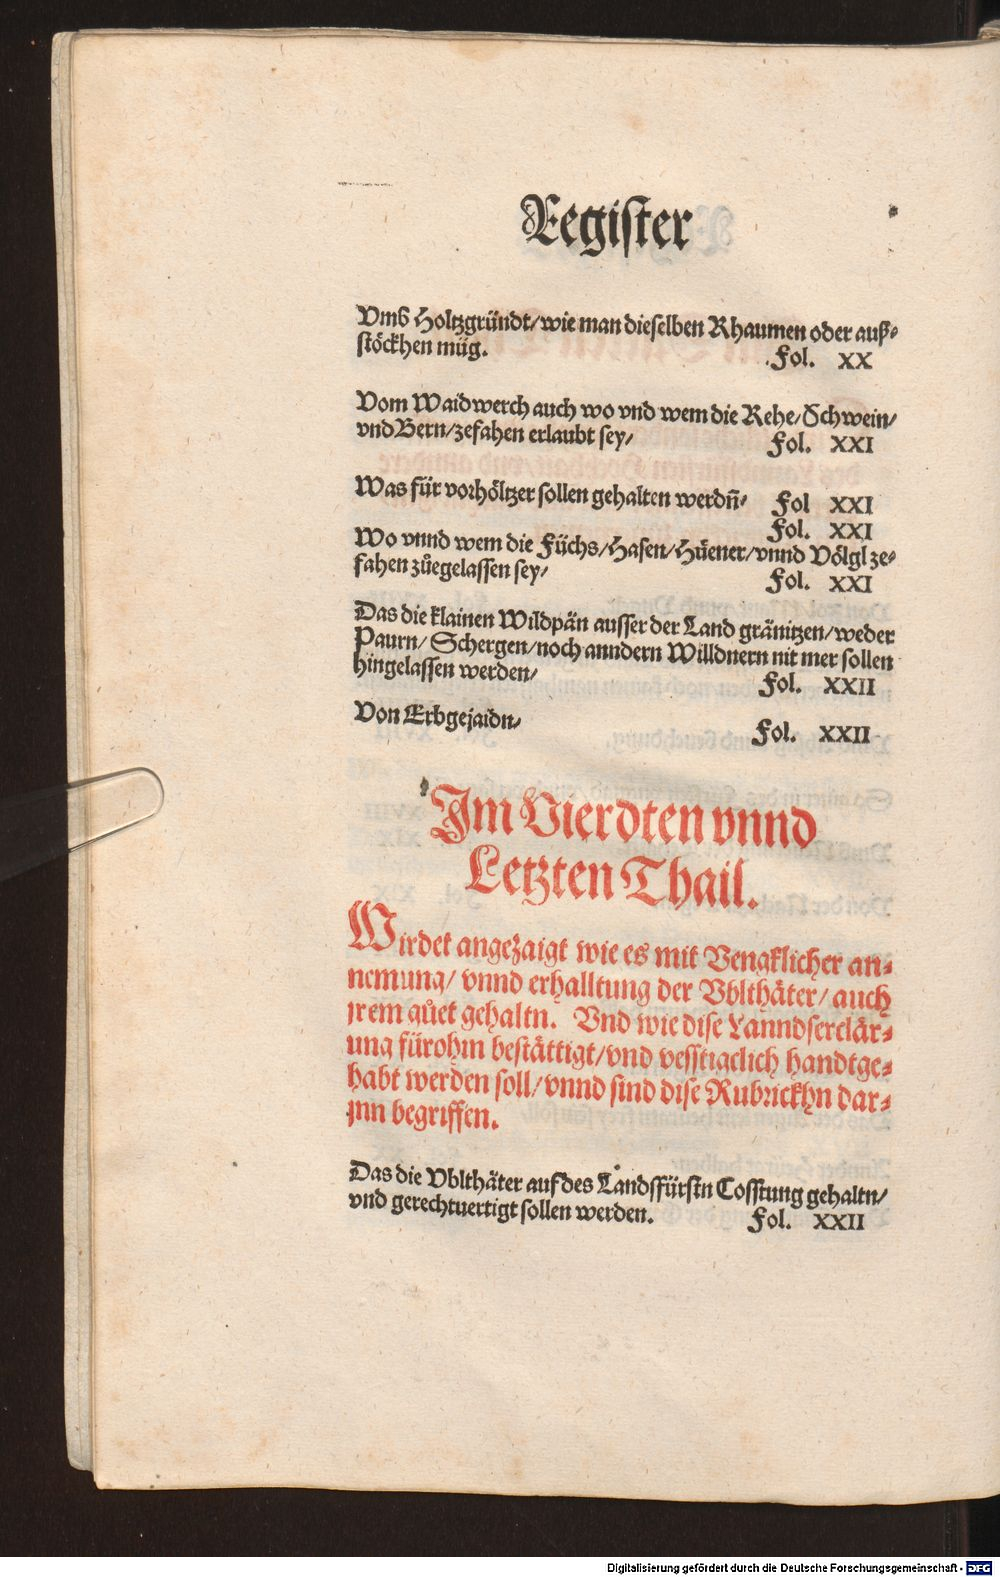 Register
Vmb Holtzgründt/wie man dieselben Rhaumen oder auß-
stöckhen müg. Fol. XX
Vom Waidwerch auch wo vnd wem die Rehe/Schwein/
vnd Bern/zefahen erlaubt sey/ Fol. XXI
Was für vorhöltzer sollen gehalten werdñ/ Fol XXI
Fol. XXI
Wo vnnd wem die Füchs/Hasen/Hüener/vnnd Völgl ze-
fahen zůegelassen sey/ Fol. XXI
Das die klainen Wildpän ausser der Land gränitzen/weder
Paurn/ Schergen/noch anndern Willdnern nit mer sollen
hingelassen werden/ Fol. XXII
Von Erbgejaidn/ Fol. XXII
Im Vierdten vnnd
Letzten Thail.
Wirdet angezaigt wie es mit Vengklicher an-
nemung/ vnnd erhalltung der Vblthäter/ auch
jrem gůet gehaltn. Vnd wie dise Lanndserclär-
ung fürohin bestättigt/vnd vesstigclich handtge-
habt werden soll/vnnd sind dise Rubrickhn dar-
jnn begriffen.
Das die Vblthäter auf des Landsfürstn Cosstung gehaltn/
vnd gerechtuertigt sollen werden. Fol. XXII
Digitalisierung gefördert durch die Deutsche Forschungsgemeinschaft - DFG